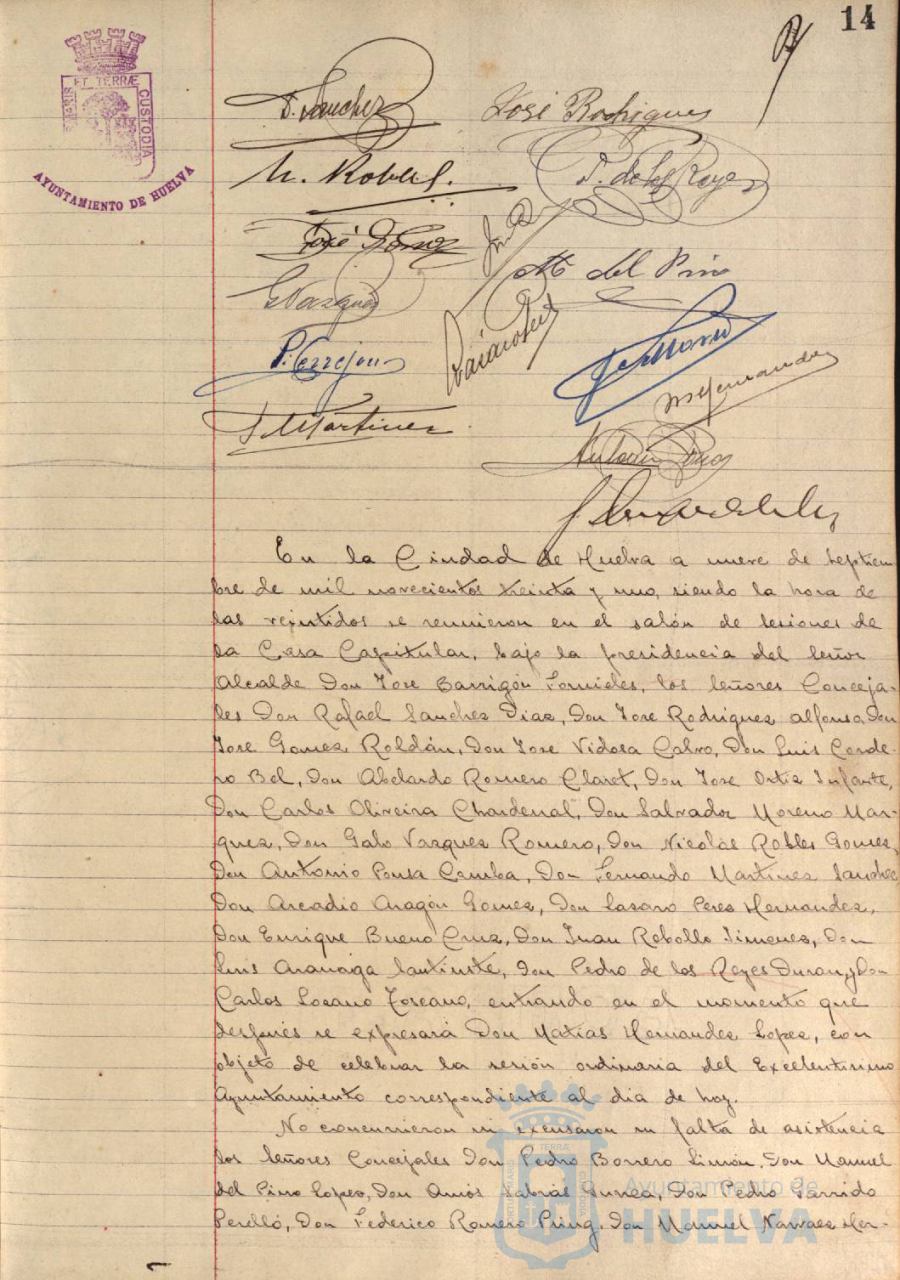 14
ET TERRÆ
CUSTODIA
AYUNTAMIENTO DE HUELVA
D. Sanchez
José Rodrigues
N. Robles
P. de los Reyes
José Gomez
M. del Pino
G Vazquez
P. Cerrejon
M Hernandez
F Martinez
En la Ciudad de Huelva a nueve de Septiem
bre de mil novecientos treinta y uno, siendo la hora de
las veintidos se reunieron en el salón de sesiones de
la Casa Capitular, bajo la presidencia del Señor
Alcalde Don Jose Barrigón Fornieles, los Señores Conceja-
les Don Rafael Sanchez Diaz, Don Jose Rodriguez Alfonso, Don
Jose Gomez Roldán, Don Jose Vidosa Calvo, Don Luis Corde-
ro Bel, Don Abelardo Romero Claret, Don Jose Ortiz Infante,
Don Carlos Oliveira Chardenal, Don Salvador Moreno Mar-
quez, Don Galo Vazquez Romero, Don Nicolás Robles Gomez,
Don Antonio Ponsa Camba, Don Fernando Martinez Sanchez
Don Arcadio Aragón Gomez, Don Lazaro Perez Hernandez,
Don Enrique Bueno Cruz, Don Juan Rebollo Jimenez, Don
Luis Don Pedro de los Reyes Duran y Don
Carlos Lozano Toscano, entrando en el momento que
después se expresará Don Matías Hernandez Lopez, con
objeto de celebrar la sesión ordinaria del Excelentisimo
Ayuntamiento correspondiente al dia de hoy.
No concurrieron ni excusaron su falta de asistencia
los Señores Concejales Don Pedro Borrero Limón, Don Manuel
del Pino Lopez, Don Amós Sabrás Gurrea, Don Pedro Garrido
Perelló, Don Federico Romero Don Manuel Narvaez Her-
Ayuntamiento de
HUELVA